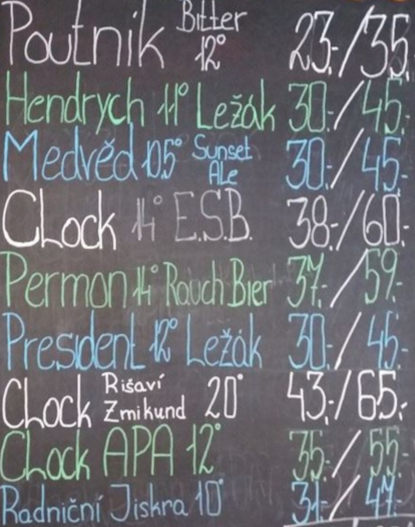 Poutník Bitter 12° 23,-/35,-
Hendrych 11° Ležák 30,-/45,-
Medvěd 10,5° Sunset Ale 30,-/45,-
CLock 14° E.S.B. 38,-/60,-
Permon 14° Rauch Bier 37,-/59,-
President 12° Ležák 30,-/45,-
CLock Rišaví Zmikund 20° 43,-/65,-
CLock APA 12° 35,-/55,-
Radniční Jiskra 10° 31,-/47,-